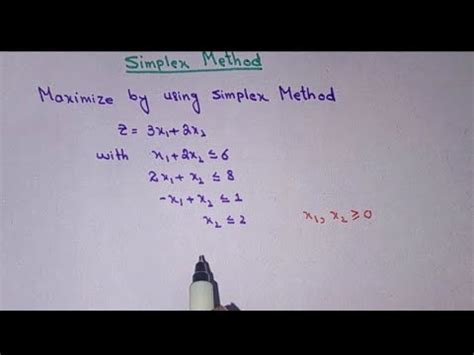 Simplex Method
Maximize by using Simplex Method
Z = 3x₁+2x₂
with x₁+2x₂≤6
2x₁+x₂≤8
-x₁+x₂≤1
x₂≤2 x₁,x₂≥0